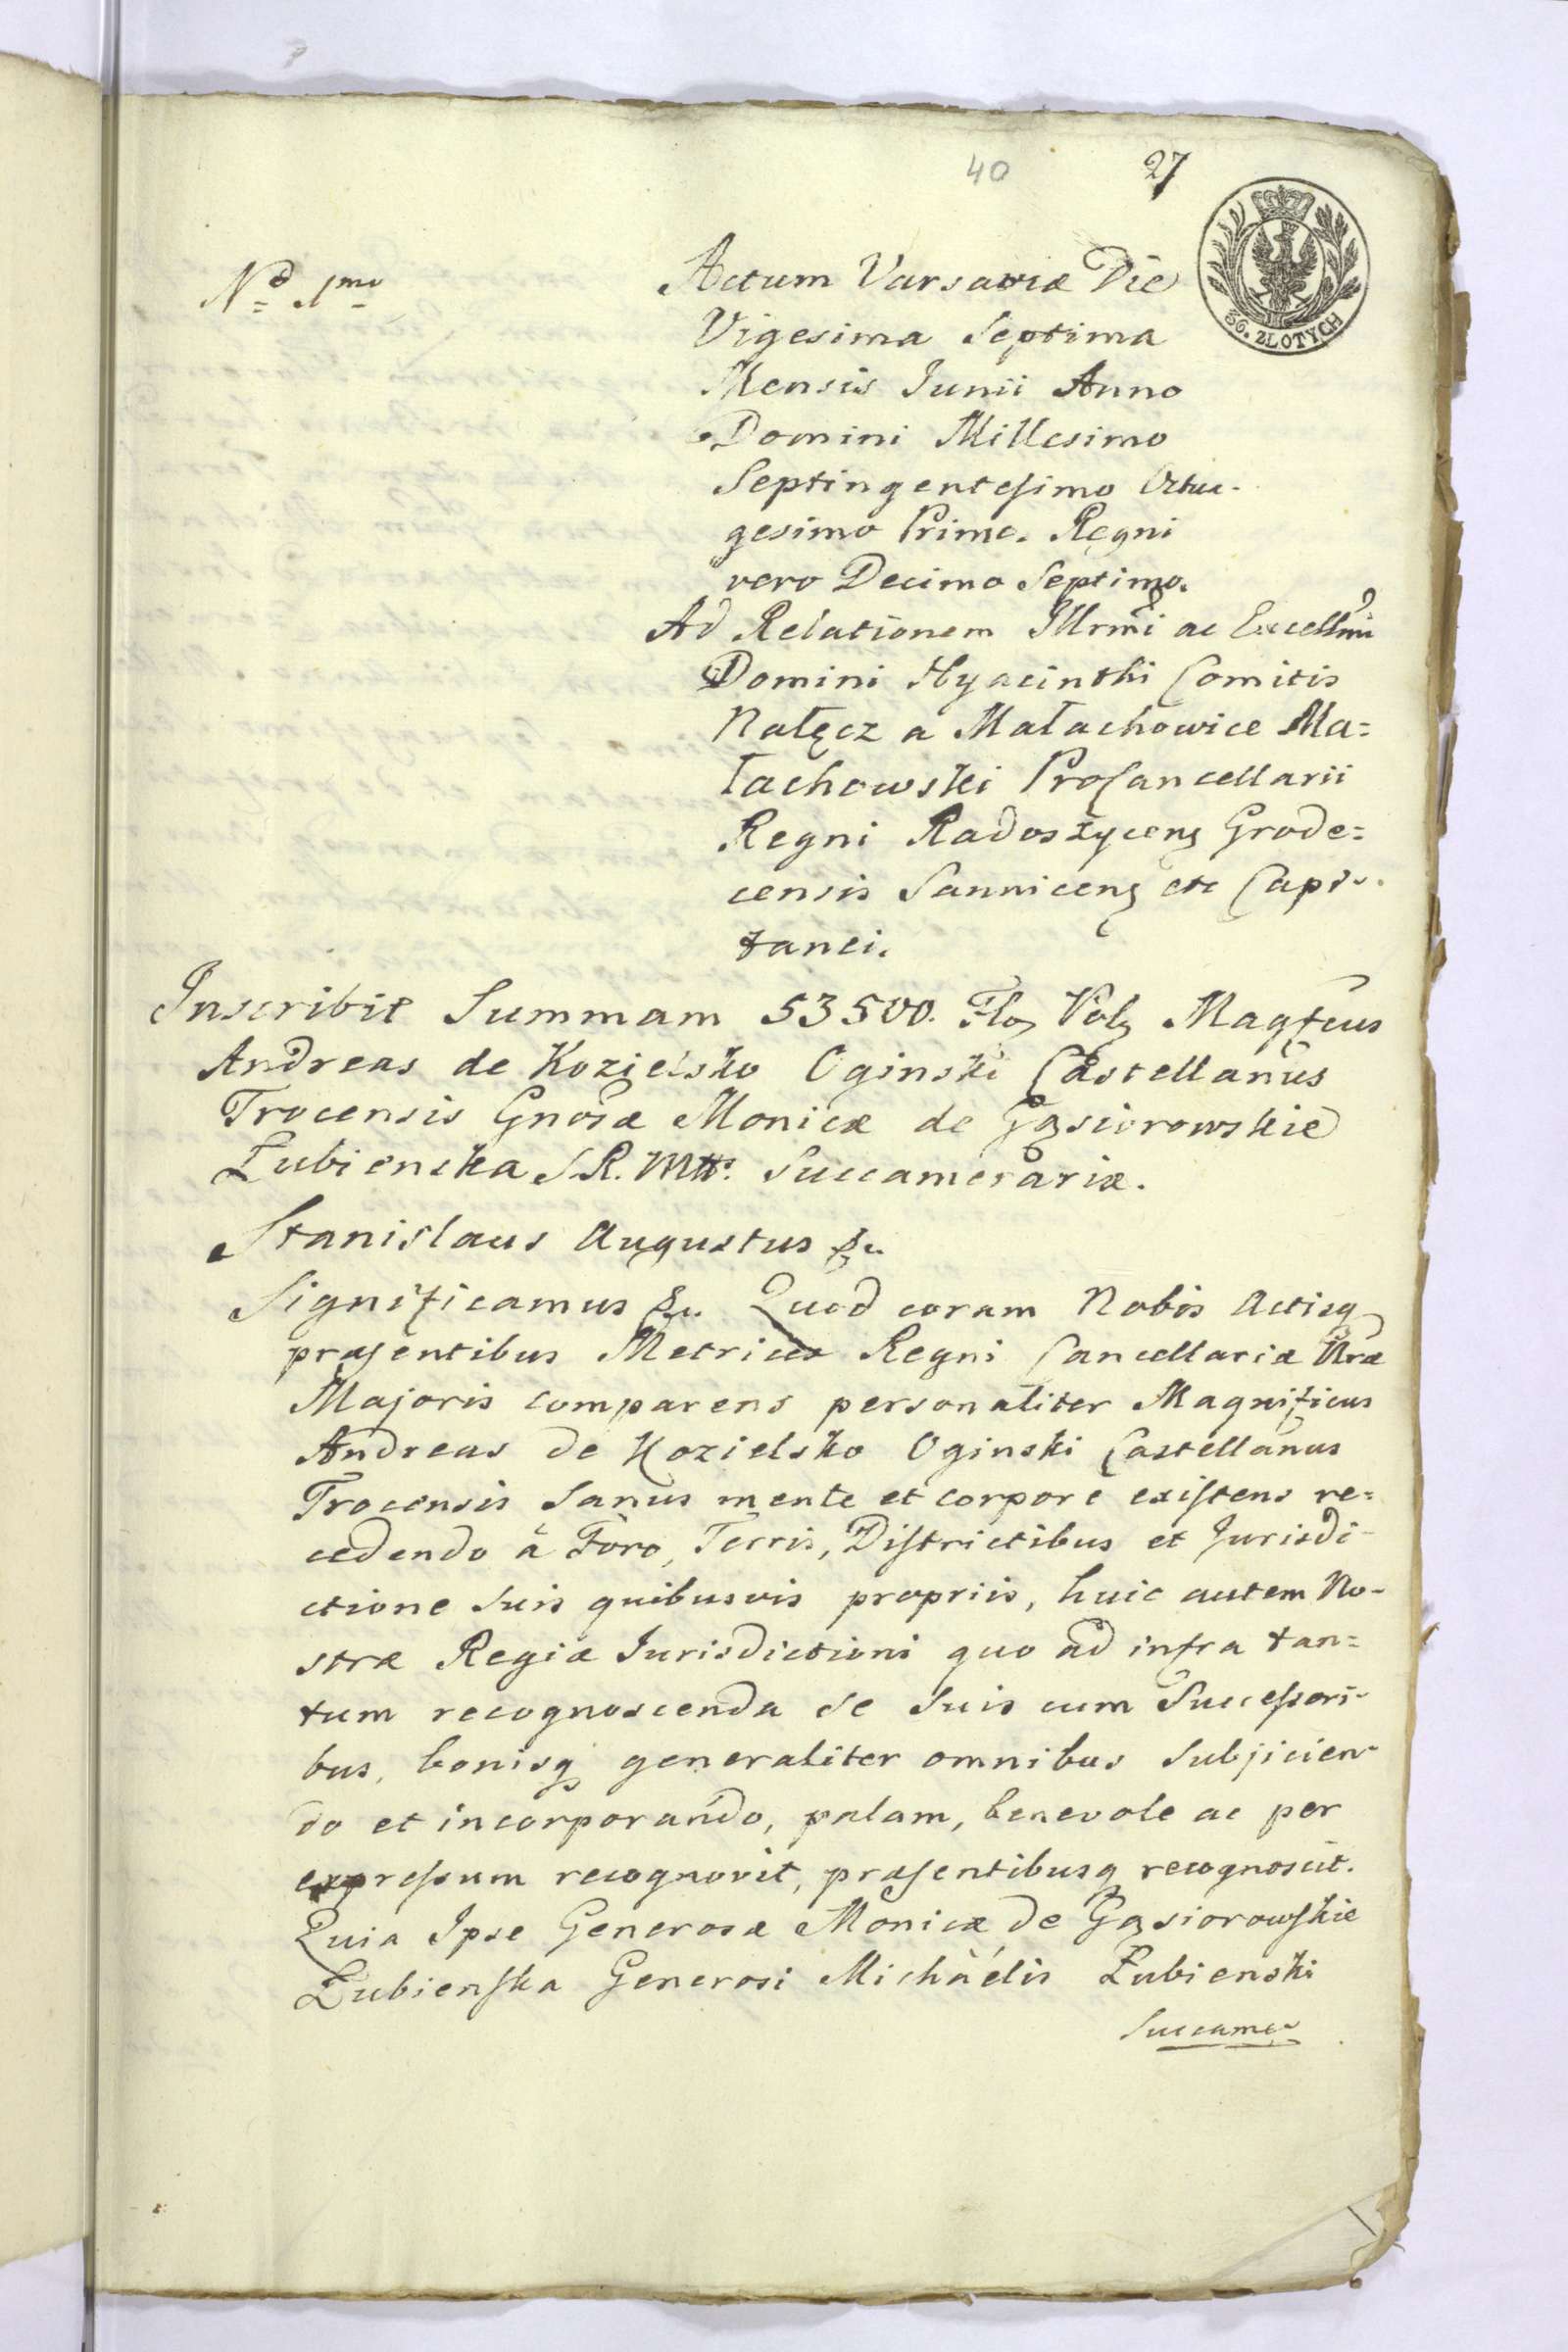 40
27
36. ZŁOTYCH
No 1mo
Actum Varsaviæ Die
Vigesima Septima
Mensis Junii Anno
Domini Millesimo
Septingentesimo Octua-
gesimo Primo. Regni
vero Decimo Septimo.
Ad Relationem Illrmi ac Excellmi
Domini Hyacinthi Comitis
Nałęcz a Małachowice Ma=
łachowski ProCancellarii
Regni Radoszycens Grode=
censis Sannicens etc Capi-
tanei.
Inscribit Summam 53500. Flor Pol Magfcus
Andreas de Kozielsko Oginski Castellanus
Trocensis Gnosæ Monicæ de Gąsiorowskie
Łubienska S.R. Mtt: Succamerariæ.
Stanislaus Augustus &c.
Significamus &c. Quod coram Nobis Actisq
præsentibus Metrices Regni Cancellariæ Nræ
Majoris comparens personaliter Magnificus
Andreas de Kozielsko Oginski Castellanus
Trocensis Sanus mente et corpore existens re=
cedendo à Foro, Terris, Districtibus et Jurisdi-
ctione Suis quibusvis propriis, huic autem No-
stræ Regiæ Jurisdictioni quo ad infra tan=
tum recognoscenda se Suis cum Successori-
bus, bonisq generaliter omnibus Subjicien-
do et incorporando, palam, benevole ac per
expressum recognovit, præsentibusq recognoscit.
Quia Ipse Generosæ Monicæ de Gąsiorowskie
Łubienska Generosi Michäélis Łubienski
Succame-